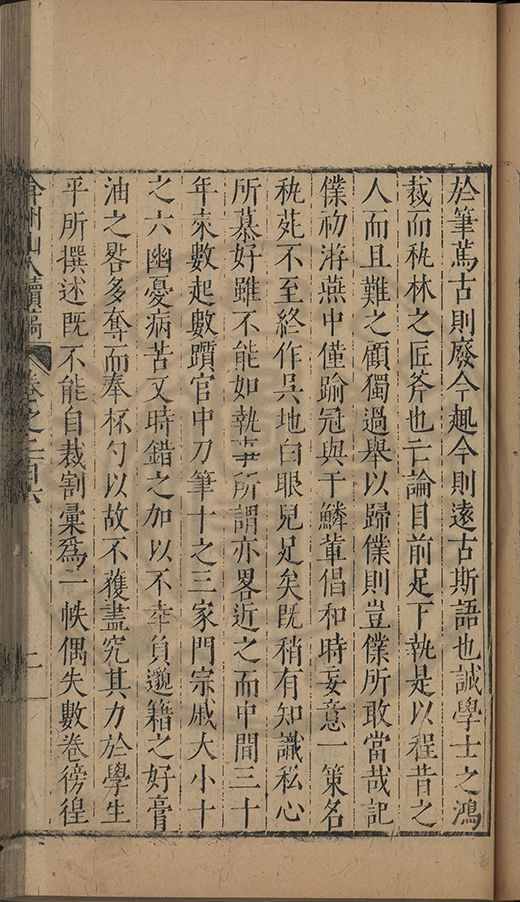 於筆篤古則廢今趣今則遠古斯語也誠學士之鴻
裁而秇林之匠斧也亡論目前足下執是以程昔之
人而且難之顧獨過舉以歸僕則豈僕所敢當哉記
僕初游燕中僅踰冠與于鱗輩倡和時妄意一策名
秇苑不至終作吳地白眼兒足矣既稍有知識私心
所慕好雖不能如執事所謂亦畧近之而中間三十
年來數起數躓官中刀筆十之三家門宗戚大小十
之六幽憂病苦又時錯之加以不幸負邈籍之好膏
油之晷多奪而奉杯勺以故不獲盡究其力於學生
平所撰述既不能自裁割彙為一帙偶失數卷徬徨
弇州山人續稿 卷之二百六 二